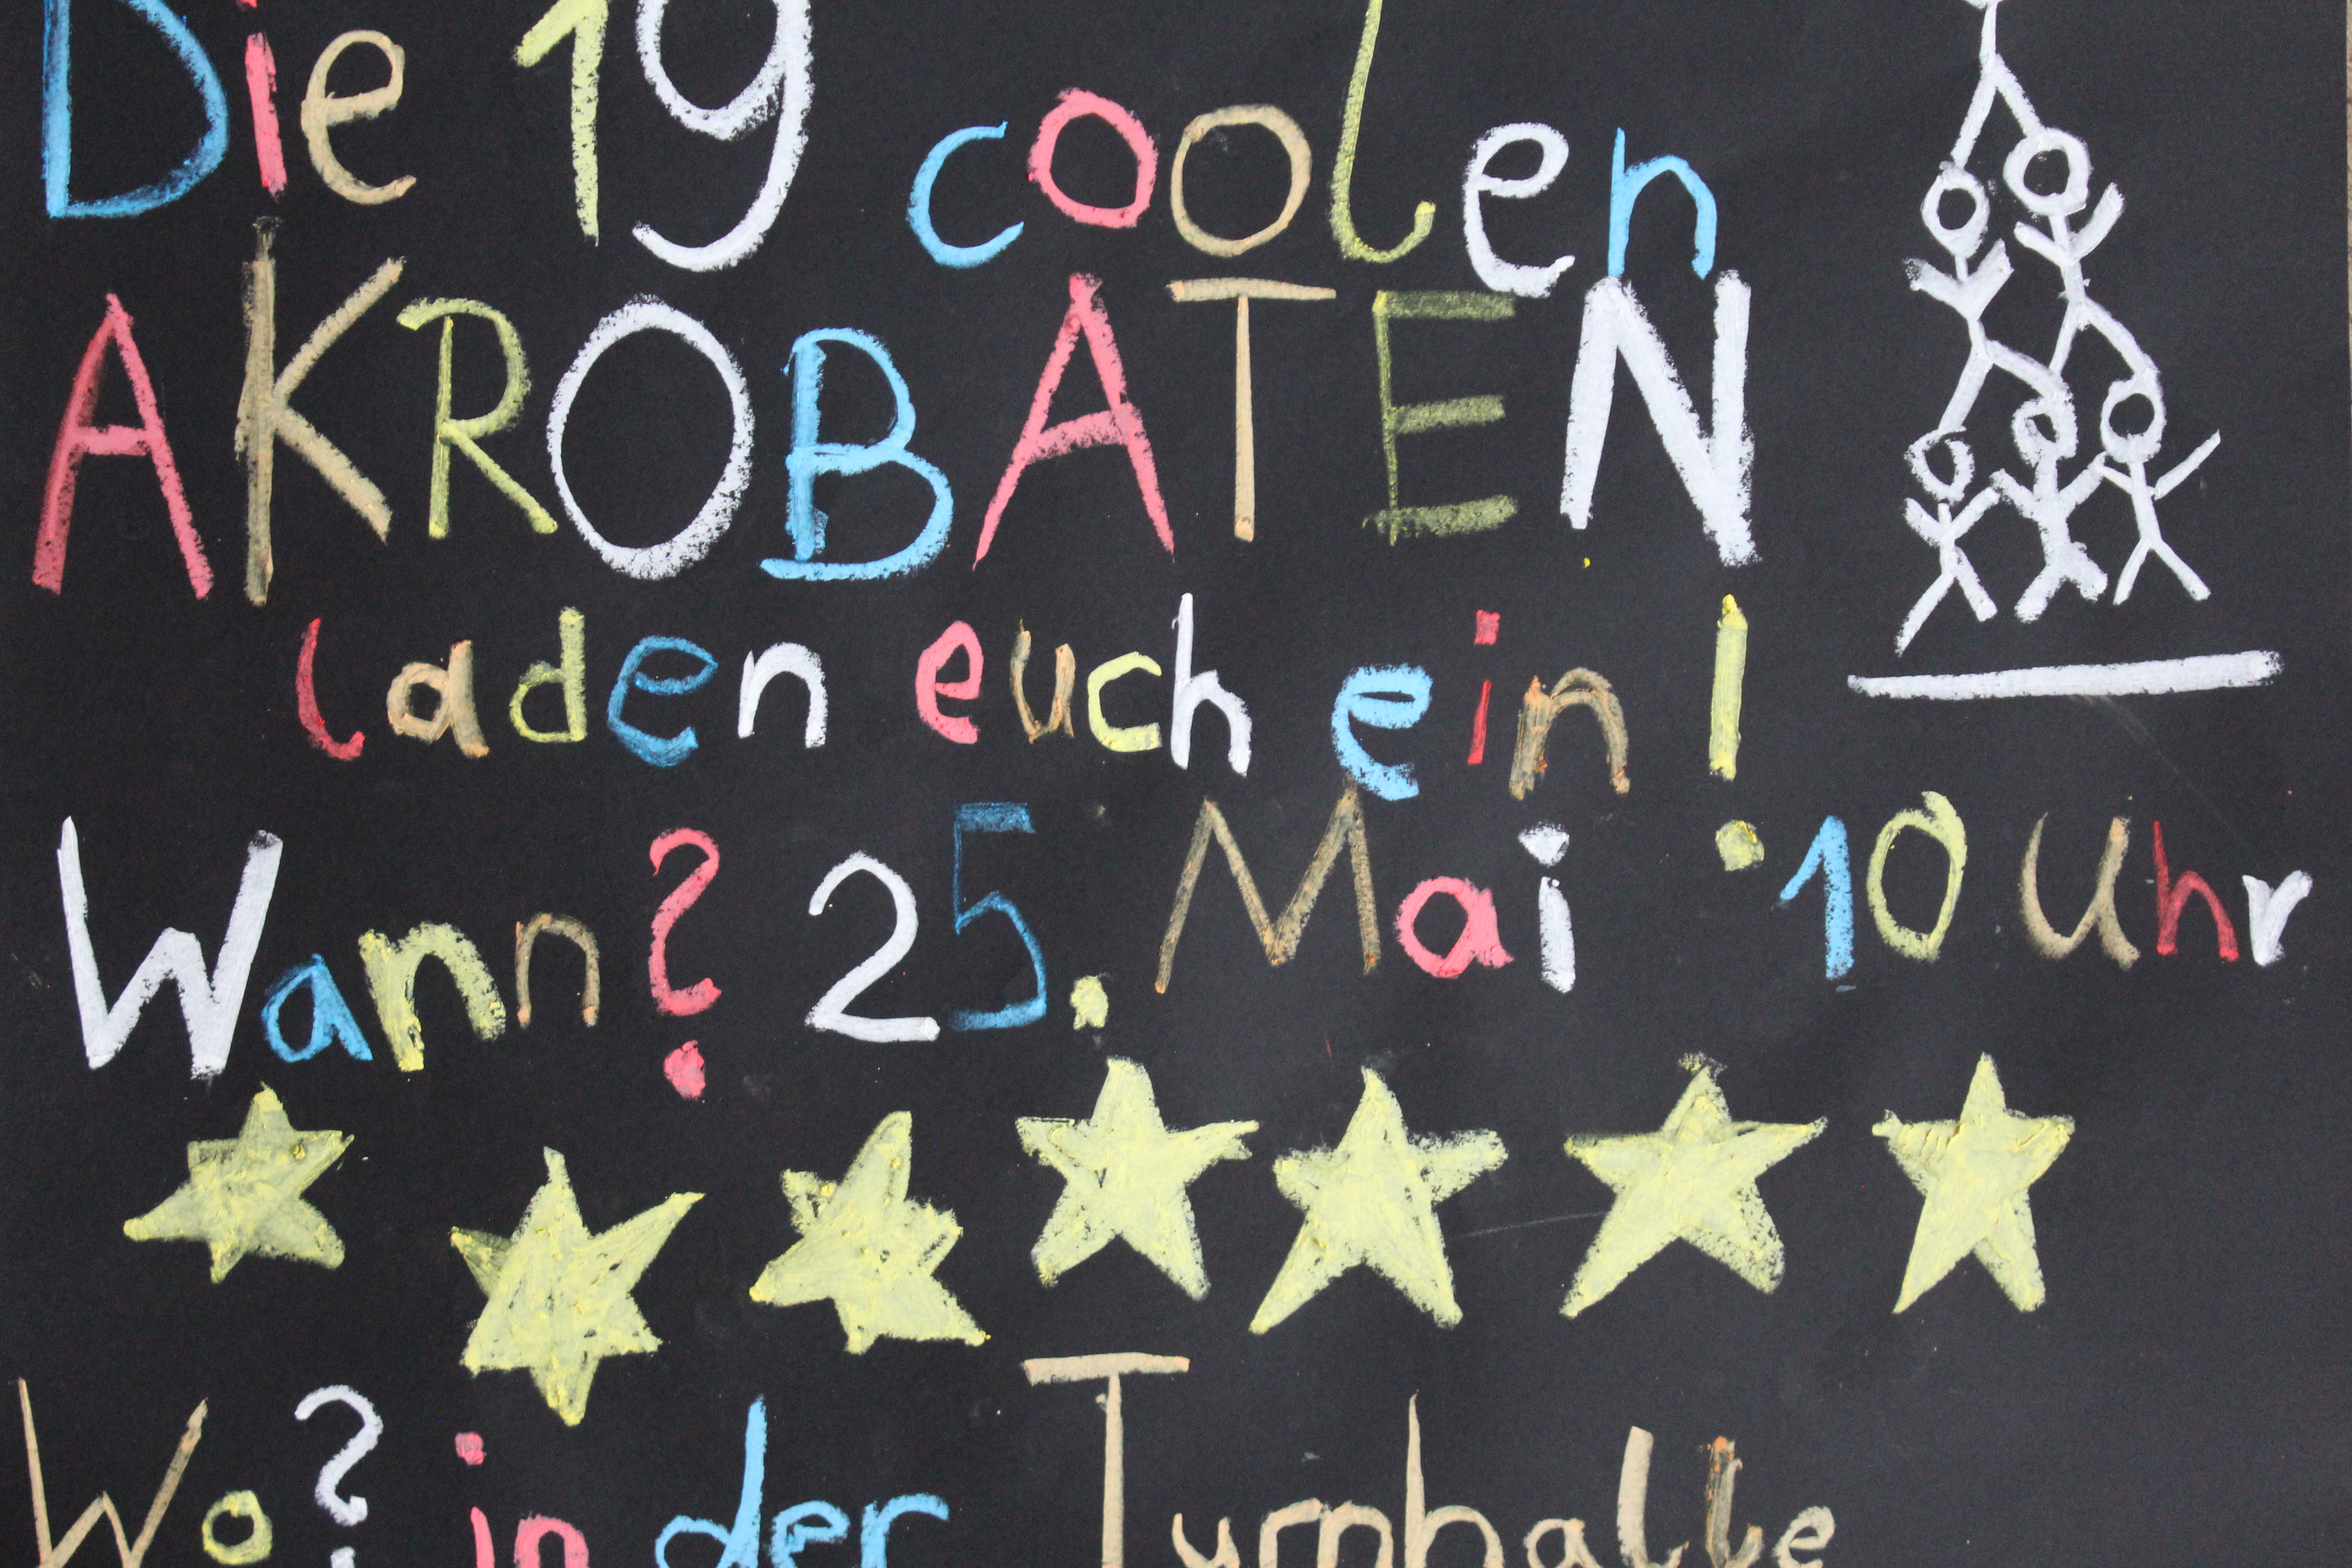 Die 19 coolen
AKROBATEN
laden euch ein!
Wann? 25. Mai 10 Uhr
Wo? in der Turnhalle